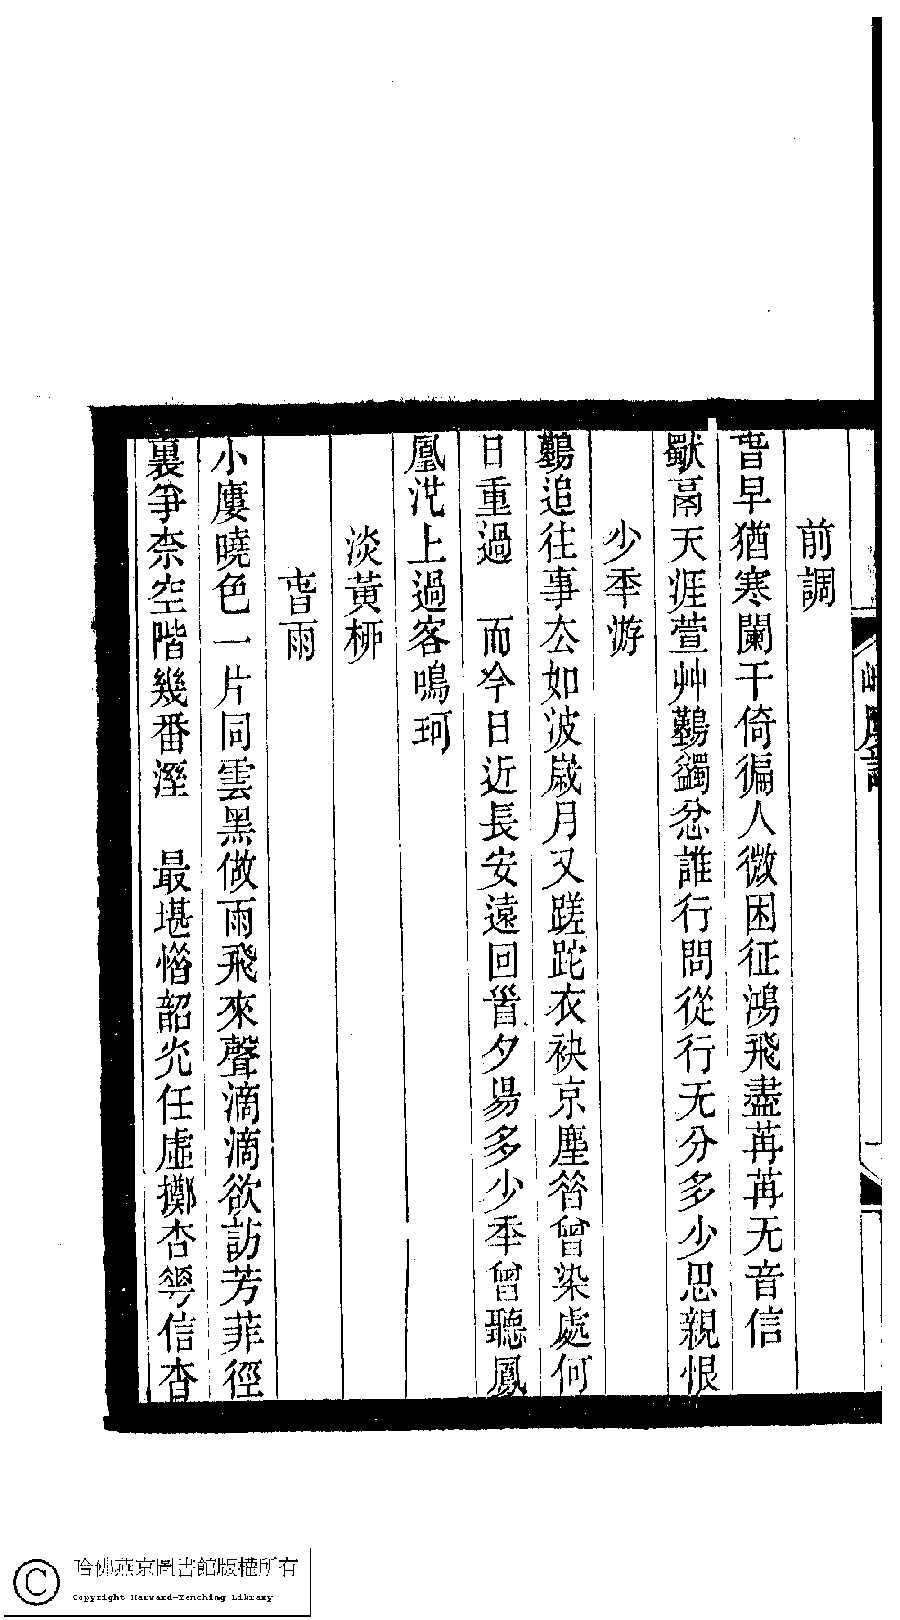 前調
旾早猶寒闌干倚徧人微困征鴻飛盡苒苒无音信
獣鬲天涯萱艸鷬蠲忿誰行問從行无分多少思親恨
少秊游
鷬追往事厺如波歲月又蹉跎衣袂京塵䇓曾染處何
日重過　而今日近長安遠回𩠐夕昜多少秊曾聽鳳
凰池上過客鳴珂
淡黃桺
旾雨
小廔曉色一片同雲黑做雨飛來聲滴滴欲訪芳菲徑
裏爭柰空階幾番溼　最堪惜韶光任虛擲杏㝔信杳
哈佛燕京圖書館版權所有
Copyright Harvard-Yenching Library